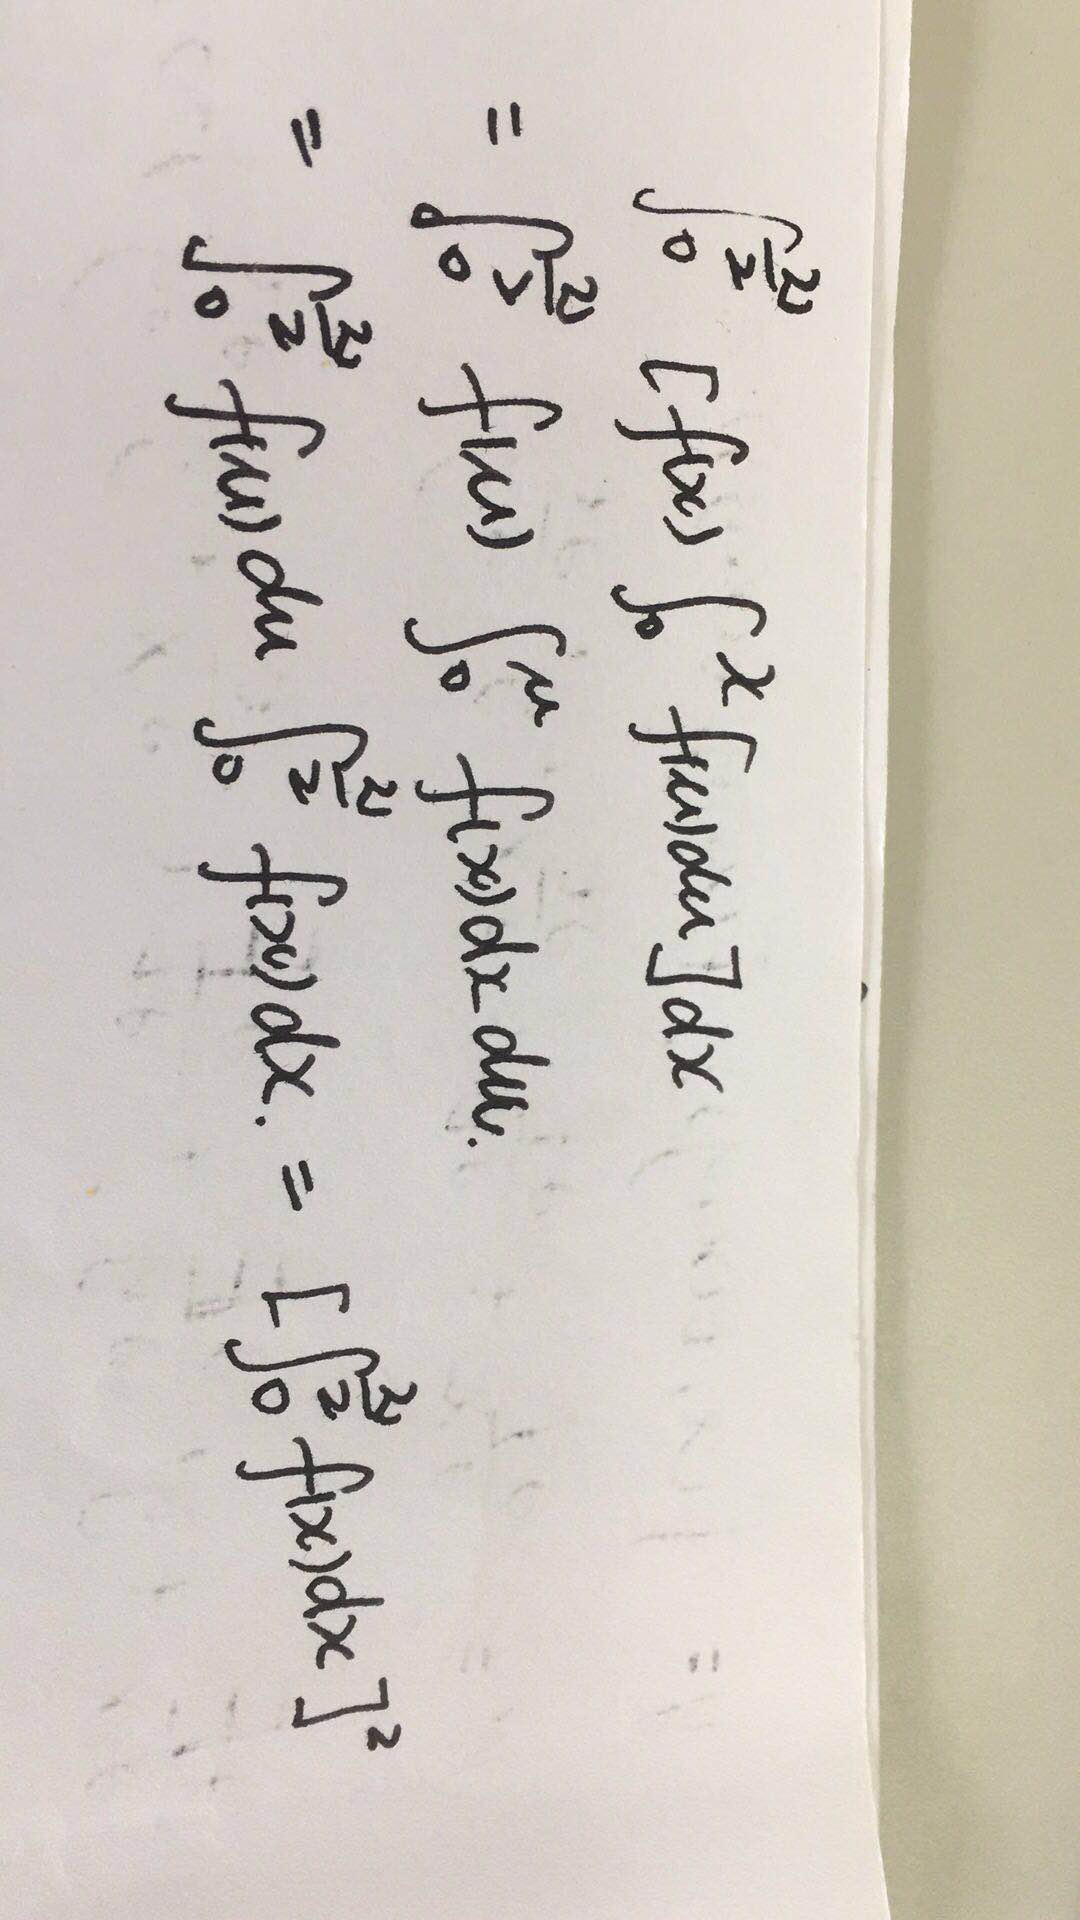 ∫₀^(π/2) [f(x) ∫₀^x f(u)du]dx
= ∫₀^(π/2) f(u) ∫₀^u f(x)dx du.
= ∫₀^(π/2) f(u)du ∫₀^(π/2) f(x)dx. = [∫₀^(π/2) f(x)dx]²